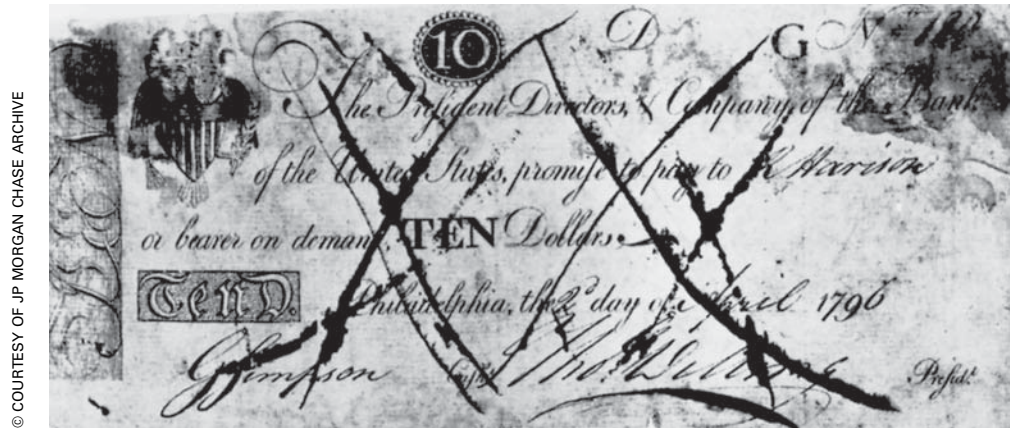 © COURTESY OF JP MORGAN CHASE ARCHIVE
10 D G N
The President Directors, & Company, of the Bank
of the United States, promise to pay to R Harison
or bearer on demand, TEN Dollars.
Ten D.
Philadelphia, the day of April 1796
G Simpson Cash.r Tho.s Willing Presid.t